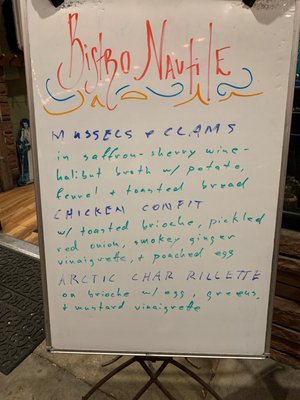 Bistro Nautile
MUSSELS & CLAMS
in saffron-sherry wine-
halibut broth w/ potato,
fennel & toasted bread
CHICKEN CONFIT
w/ toasted brioche, pickled
red onion, smokey ginger
vinaigrette, & poached egg
ARCTIC CHAR RILLETTE
on brioche w/ egg, greens,
& mustard vinaigrette